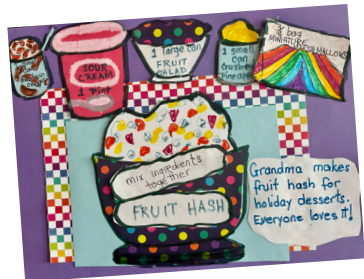 SOUR
CREAM
1 Pint
1 large can
FRUIT
SALAD
1 small
can
Crushed
Pineapple
bag
MINIATURE
MARSHMALLOWS
mix ingredients
together
FRUIT HASH
Grandma makes
fruit hash for
holiday desserts.
Everyone loves it!